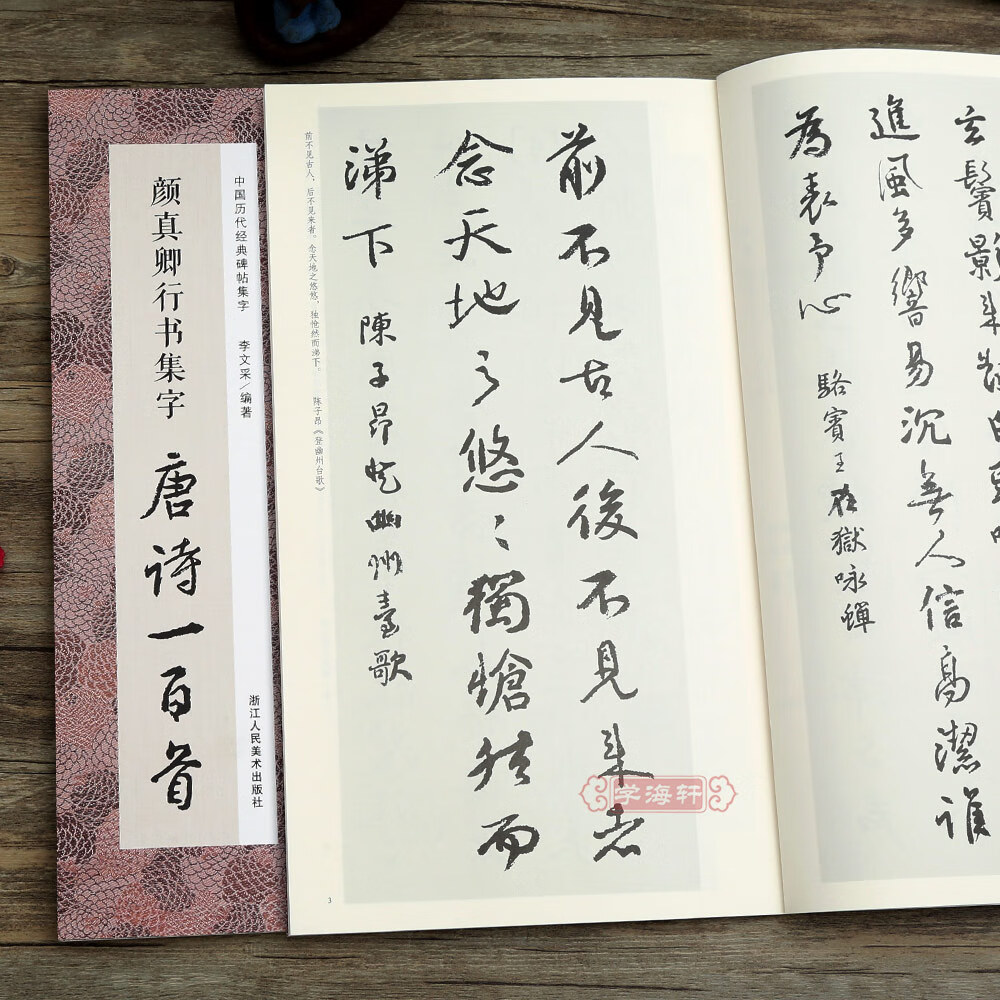 中国历代经典碑帖集字 李文采/编著
浙江人民美术出版社
颜真卿行书集字 唐诗一百首
玄鬢影来對白頭吟
進風多響易沉無人信高潔誰
為表予心 駱賓王在獄咏蟬
前不見古人後不見来者
念天地之悠〻獨愴然而
涕下 陳子昂登幽州臺歌
前不见古人，后不见来者。念天地之悠悠，独怆然而涕下。 陈子昂《登幽州台歌》
3
学海轩